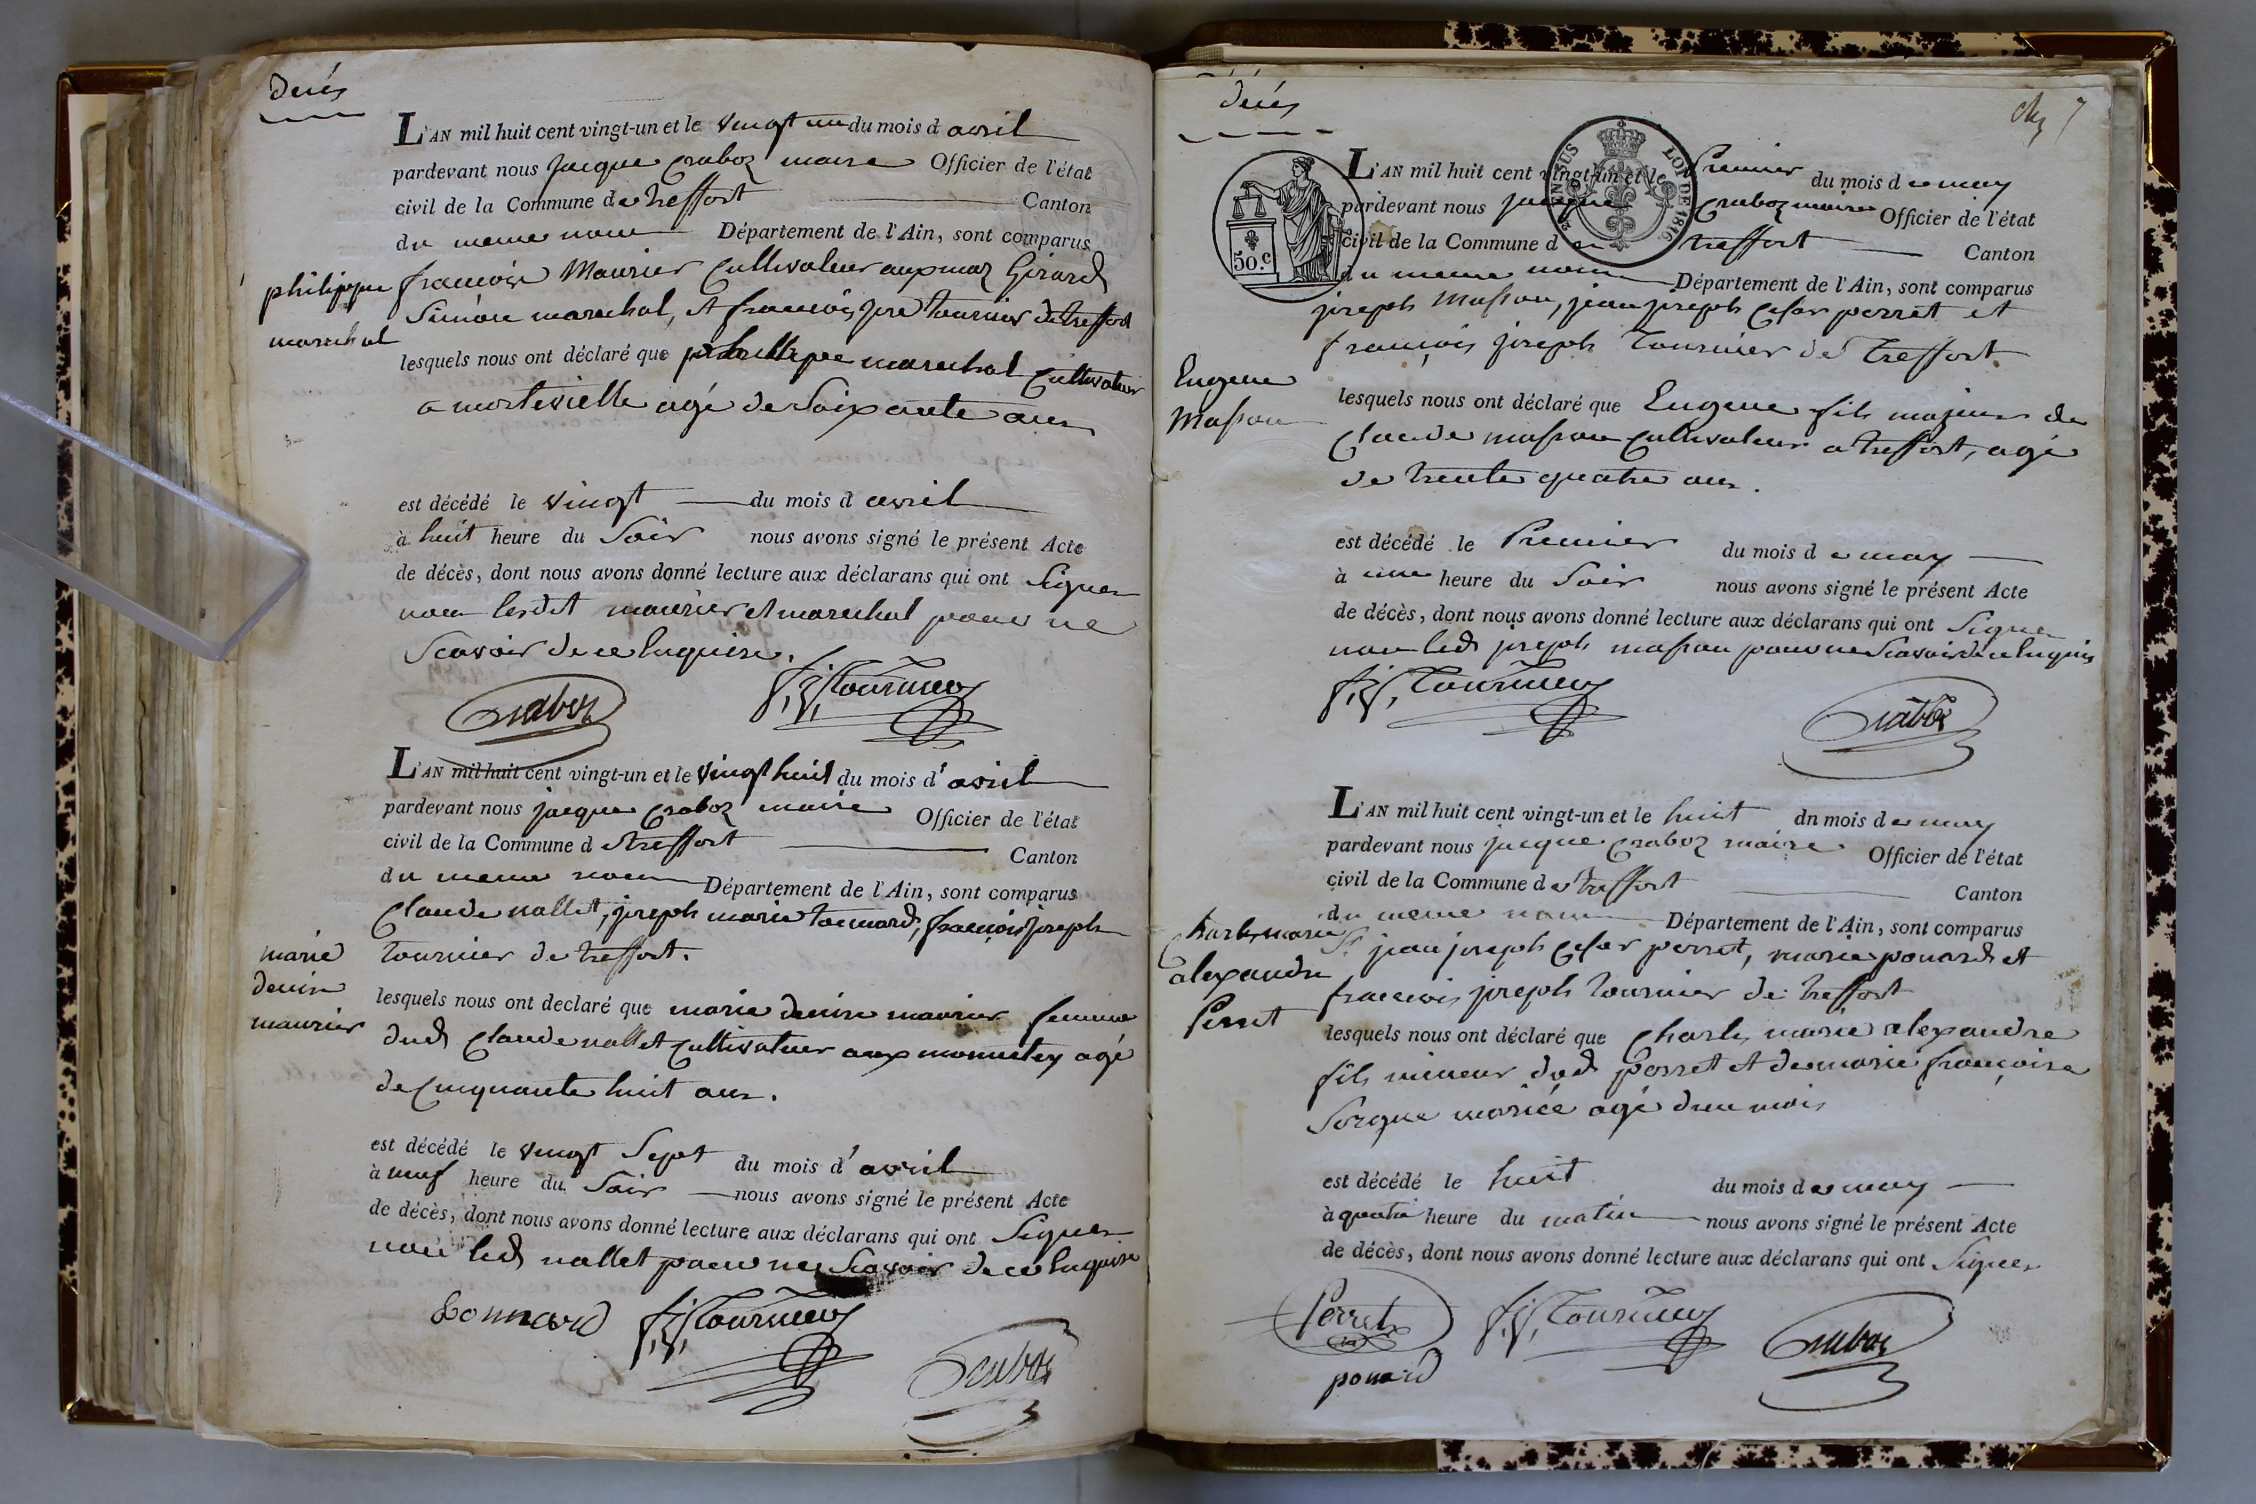 décès
L'AN mil huit cent vingt-un et le vingt un du mois d avril
pardevant nous jacque Craboz maire Officier de l'état
civil de la Commune de treffort Canton
du meme nom Département de l'Ain, sont comparus
françois Maurier Cultivateur aux maz Girard
Simon marechal, et françois jph tournier de treffort
philippe
marechal
lesquels nous ont déclaré que philippe marechal Cultivateur
a mortevielle agé de Soixante ans
est décédé le vingt du mois d avril
à huit heure du Soir nous avons signé le présent Acte
de décès, dont nous avons donné lecture aux déclarans qui ont Signer
non lesdit maurier et marechal pour ne
Scavoir de ce Enquise.
Craboz f. j. Tournier
L'AN mil huit cent vingt-un et le vingt huit du mois d'avril
pardevant nous jacque Craboz maire Officier de l'état
civil de la Commune d etreffort Canton
du meme nom Département de l'Ain, sont comparus
Claude nallet, joseph marie , françois joseph
tournier de treffort.
marie
denise
maurier
lesquels nous ont declaré que marie denise maurier femme
dud Claude nallet Cultivateur aux agé
de Cinquante huit ans.
est décédé le vingt Sept du mois d'avril
à neuf heure du Soir nous avons signé le présent Acte
de décès, dont nous avons donné lecture aux déclarans qui ont Signer
non led nallet pour ne Scavoir de ce Enquise
f. j. Tournier Craboz
décès
7
50.c
LOI DE 1816
L'AN mil huit cent vingt-un et le Premier du mois d e may
pardevant nous jacque Craboz maire Officier de l'état
civil de la Commune d e treffort Canton
du meme nom Département de l'Ain, sont comparus
joseph Masson, jean joseph Cesar perret et
françois joseph Tournier de Treffort
Eugene
Masson
lesquels nous ont déclaré que Eugene fils majeur de
Claude masson Cultivateur a treffort, agé
de trente quatre ans.
est décédé le Premier du mois d e may
à une heure du Soir nous avons signé le présent Acte
de décès, dont nous avons donné lecture aux déclarans qui ont Signer
non led joseph masson pour ne Scavoir de ce Enquis
f. j. Tournier Craboz
L'AN mil huit cent vingt-un et le huit dn mois d e may
pardevant nous jacque Craboz maire Officier de l'état
civil de la Commune d e treffort Canton
du meme nom Département de l'Ain, sont comparus
Sr jean joseph Cesar perret, marie ponard et
françois joseph tournier de treffort
Charles marie
alexandre
Perret
lesquels nous ont déclaré que Charles marie alexandre
fils mineur dud perret et de marie françoise
Sorgue mariée agé d'un mois
est décédé le huit du mois d e may
à quatre heure du matin nous avons signé le présent Acte
de décès, dont nous avons donné lecture aux déclarans qui ont Signer
Perret f. j. Tournier Craboz
ponard